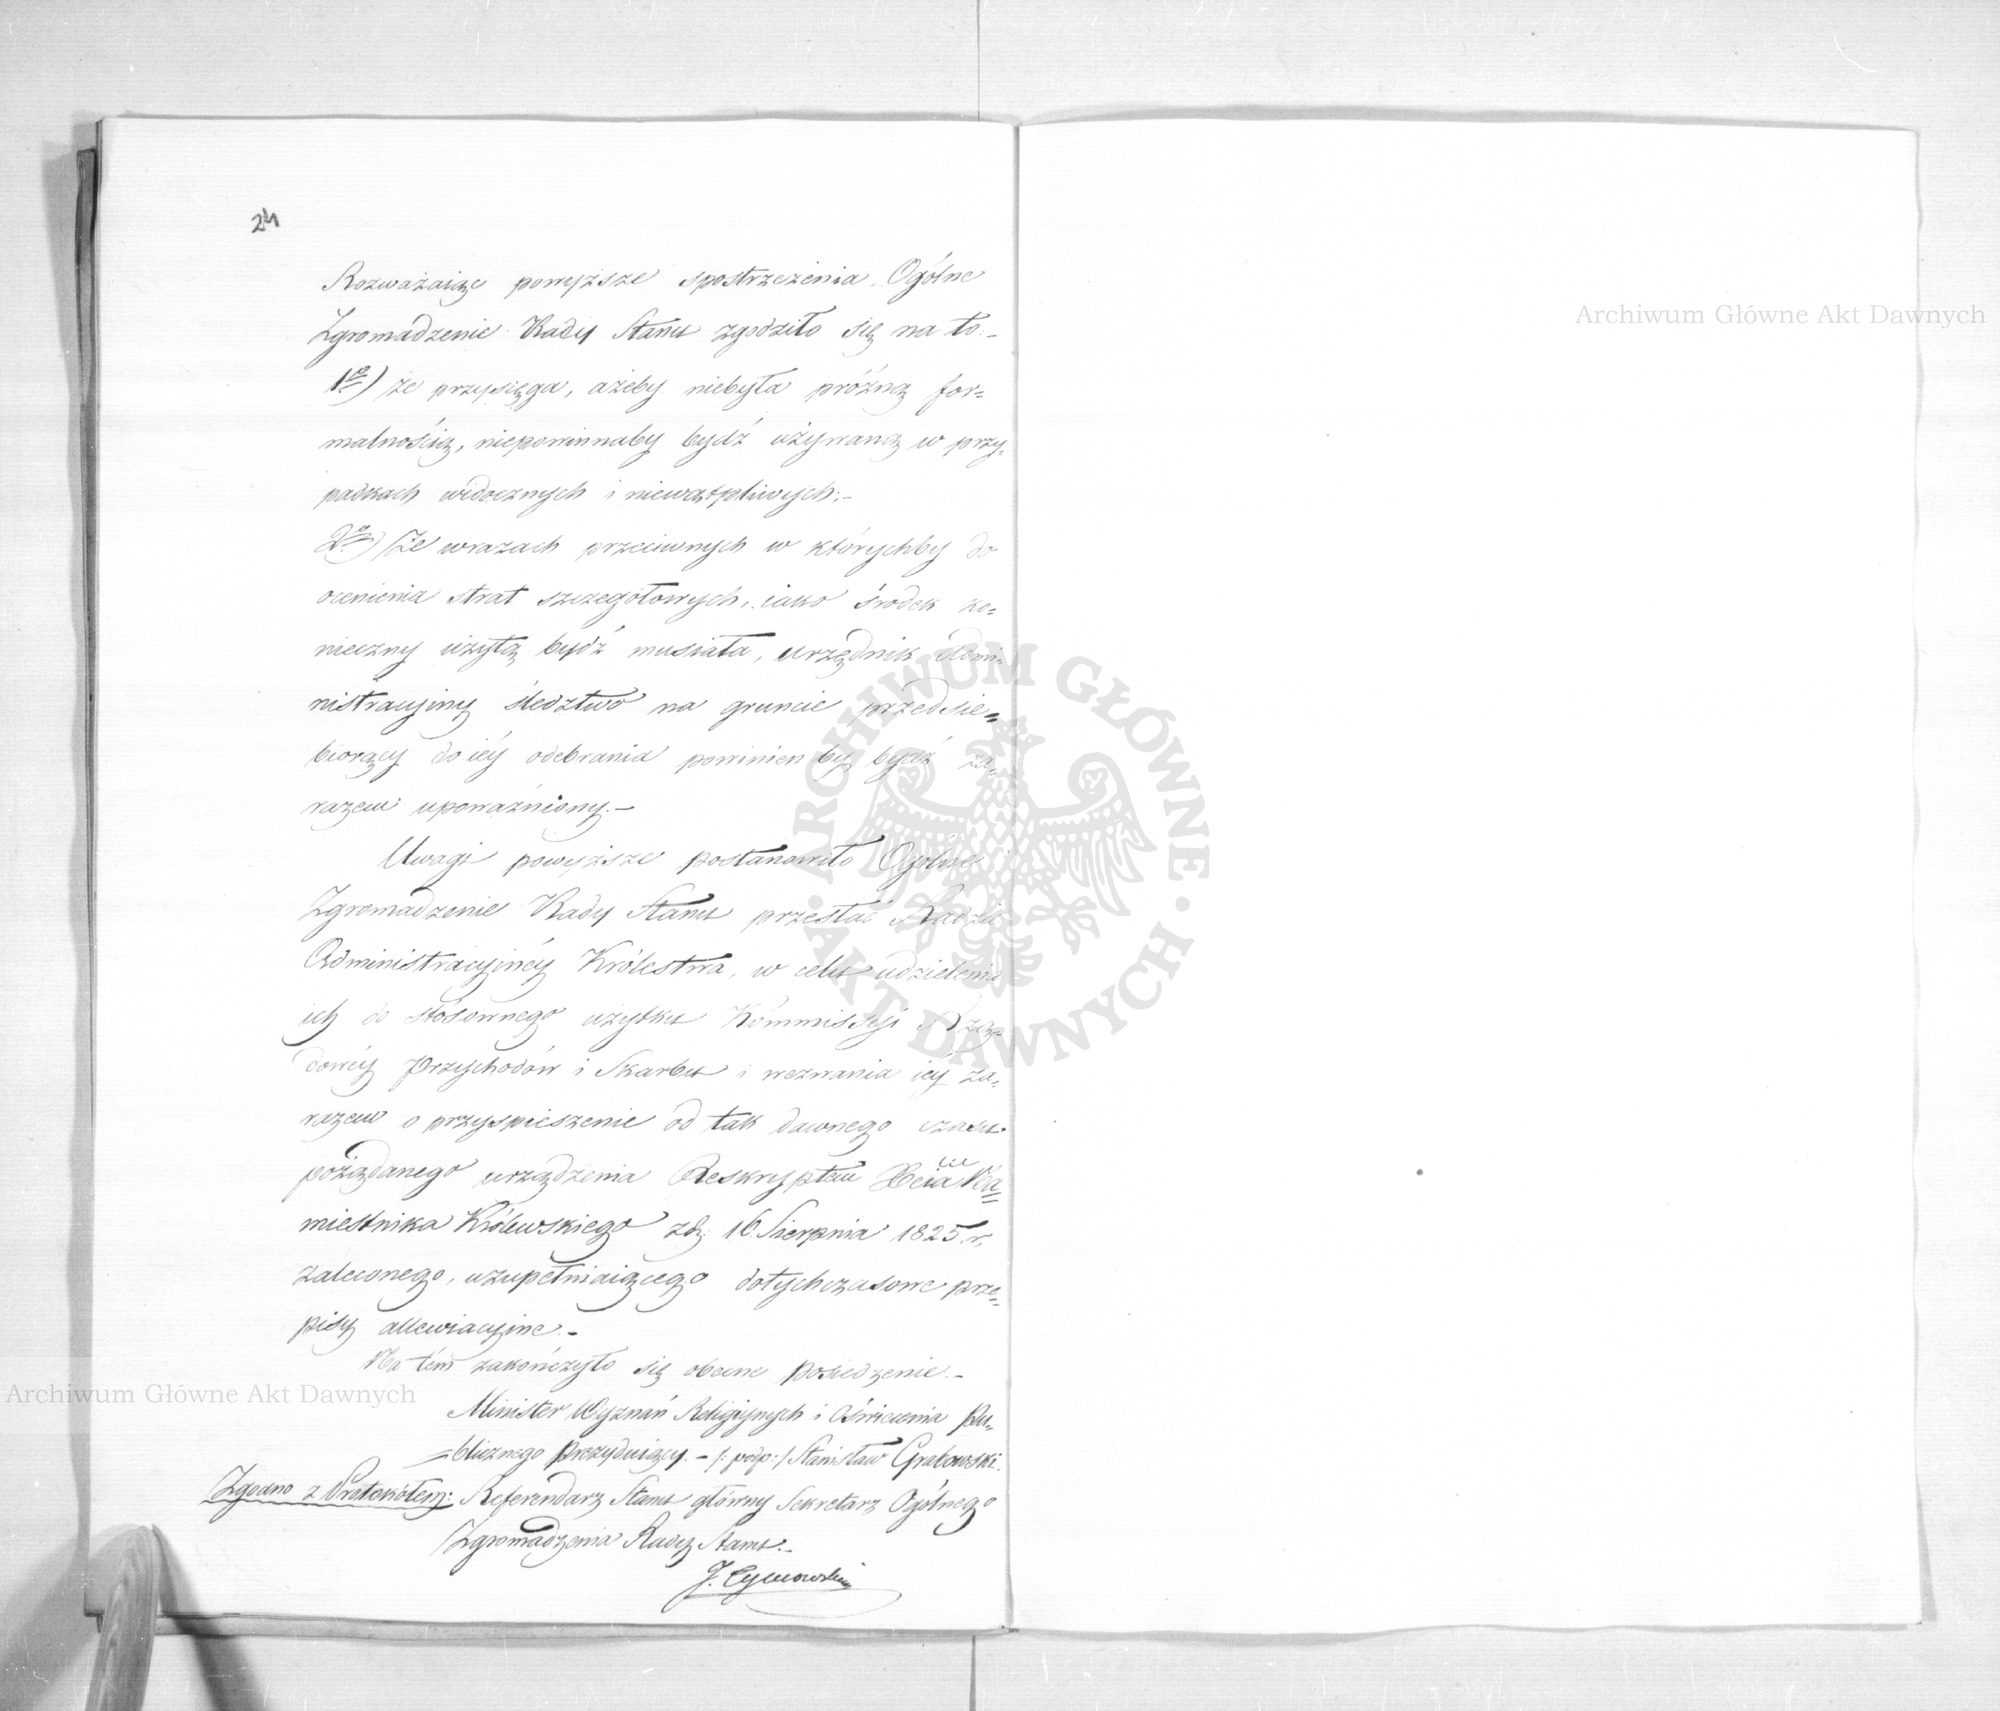 24
Rozważaiąc powyższe spostrzeżenia, Ogólne
Zgromadzenie Rady Stanu zgodziło się na to:-
1º) że przysięga, ażeby niebyła próżną for=
malnością, niepowinnaby bydź używaną w przy=
padkach widocznych i niewątpliwych;-
2º) Że wrazach przeciwnych w którychby do
ocenienia strat szczegółowych, iako środek ko=
nieczny użytą bydź musiała, urzędnik Admi=
nistracyiny śledztwo na gruncie przedsię=
biorący do iéy odebrania powinien by bydź za=
razem upoważniony.-
Uwagi powyższe postanowiło Ogólne
Zgromadzenie Rady Stanu przesłać Radzie
Administracyinéy Królestwa, w celu udzielenia
ich do stósownego użytku Kommissyi Rzą=
dowéy Przychodów i Skarbu i wezwania iéy za=
razem o przyspieszenie od tak dawnego czasu
pożądanego urządzenia Reskryptem Xcia Na=
miestnika Królewskiego z d: 16 Sierpnia 1825 r.
zaleconego, uzupełniaiącego dotychczasowe prze=
pisy allewiacyine.-
Na tém zakończyło się obecne posiedzenie.-
Minister Wyznań Religiynych i Oświecenia Pu=
=blicznego Prezyduiący.- /: podp: / Stanisław Grabowski.
Zgodno z Protokółem: Referendarz Stanu główny Sekretarz Ogólnego
Zgromadzenia Rady Stanu.-
J. Tymowski
Archiwum Główne Akt Dawnych
Archiwum Główne Akt Dawnych
ARCHIWUM GŁÓWNE · AKT DAWNYCH ·